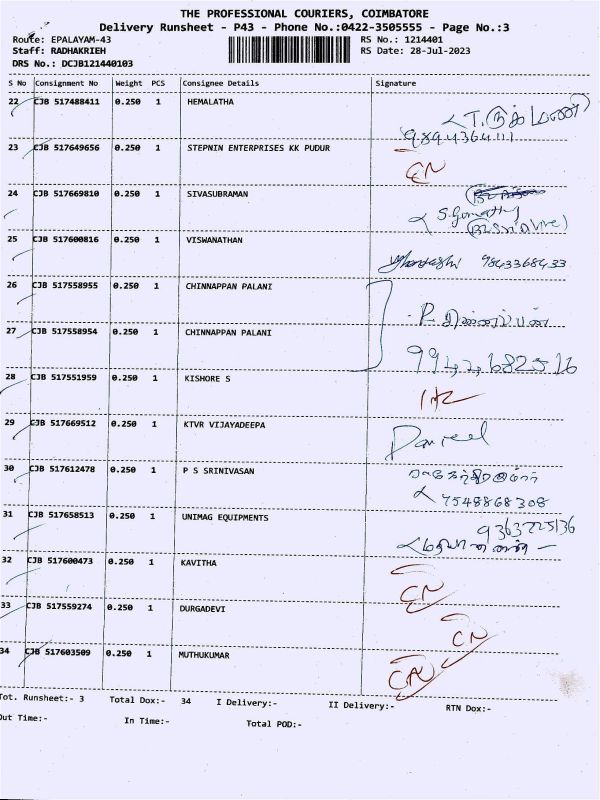 THE PROFESSIONAL COURIERS, COIMBATORE
Delivery Runsheet - P43 - Phone No.:0422-3505555 - Page No.:3
Route: EPALAYAM-43
RS No.: 1214401
Staff: RADHAKRIEH
RS Date: 28-Jul-2023
DRS No.: DCJB121440103
S No Consignment No Weight PCS Consignee Details Signature
22 CJB 517488411 0.250 1 HEMALATHA
9894364111
23 CJB 517649656 0.250 1 STEPNIN ENTERPRISES KK PUDUR
CN
24 CJB 517669810 0.250 1 SIVASUBRAMAN
25 CJB 517600816 0.250 1 VISWANATHAN
9843368433
26 CJB 517558955 0.250 1 CHINNAPPAN PALANI
27 CJB 517558954 0.250 1 CHINNAPPAN PALANI
9942682516
28 CJB 517551959 0.250 1 KISHORE S
29 CJB 517669512 0.250 1 KTVR VIJAYADEEPA
30 CJB 517612478 0.250 1 P S SRINIVASAN
7548868308
31 CJB 517658513 0.250 1 UNIMAG EQUIPMENTS
9363225136
32 CJB 517600473 0.250 1 KAVITHA
CN
33 CJB 517559274 0.250 1 DURGADEVI
CN
34 CJB 517603509 0.250 1 MUTHUKUMAR
CN
Tot. Runsheet:- 3 Total Dox:- 34 I Delivery:- II Delivery:- RTN Dox:-
Out Time:- In Time:- Total POD:-